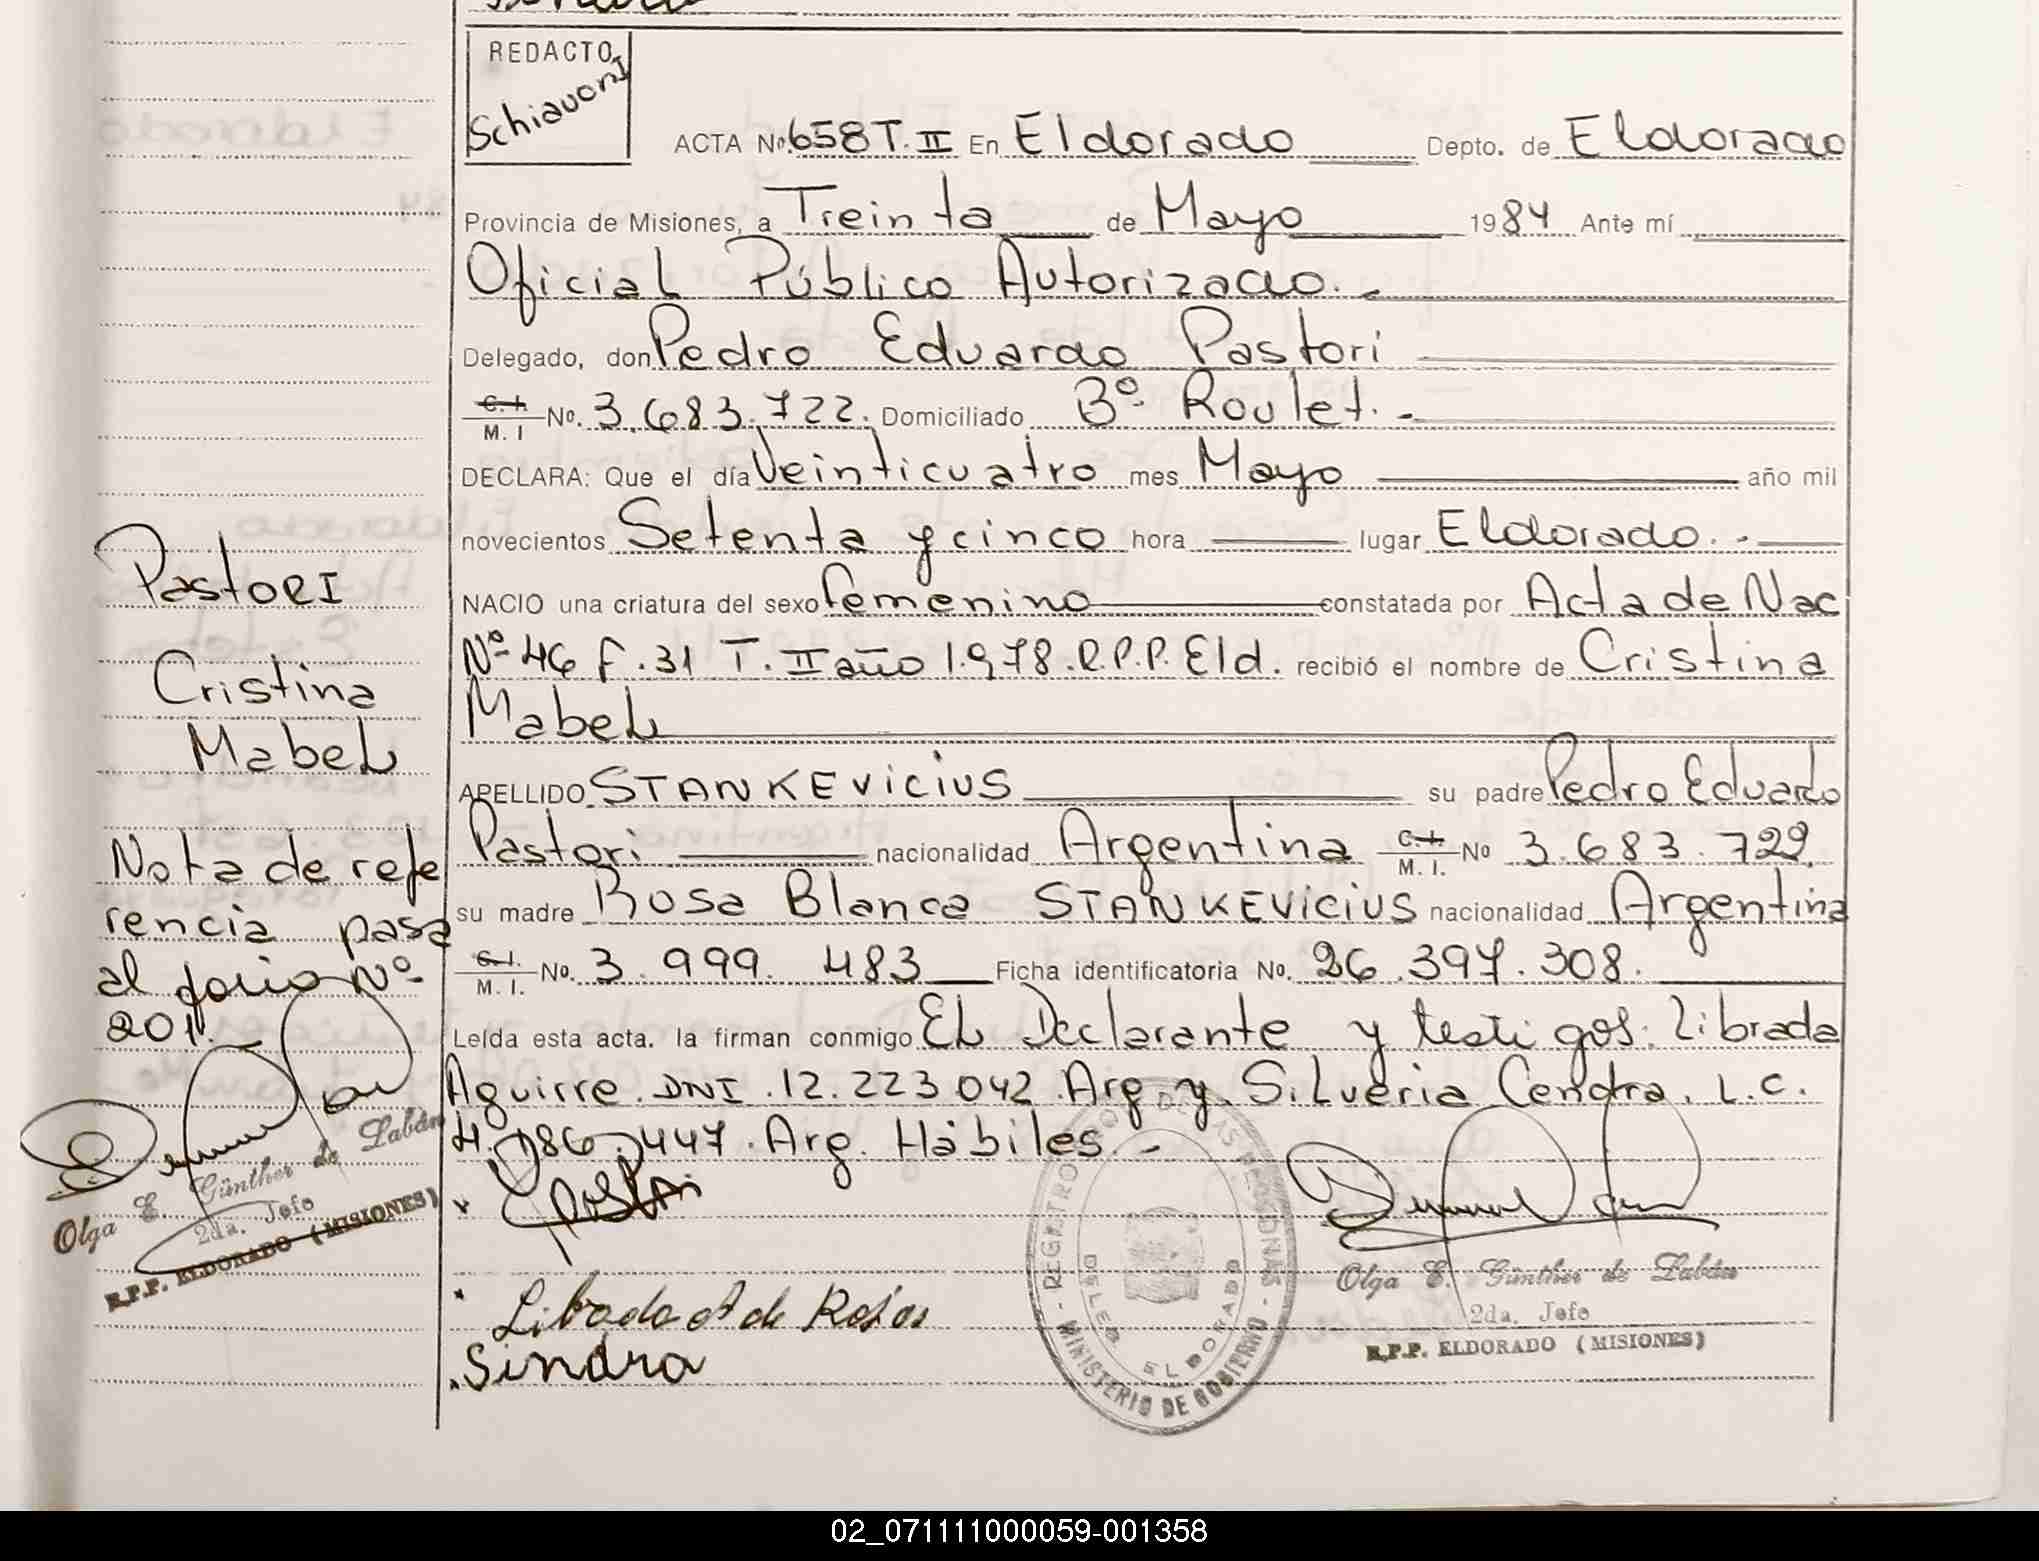 REDACTO
Schiavoni
ACTA No. 658 T. II En Eldorado Depto. de Eldorado
Provincia de Misiones, a Treinta de Mayo 1984 Ante mí
Oficial Público Autorizado. -
Delegado, don Pedro Eduardo Pastori
C. I. M. I No. 3.683.722. Domiciliado Bº. Roulet. -
DECLARA: Que el día Veinticuatro mes Mayo año mil
novecientos Setenta y cinco hora lugar Eldorado. -
NACIO una criatura del sexo femenino constatada por Acta de Nac
Nº 46 F. 31 T. II año 1.978. R.P.P. Eld. recibió el nombre de Cristina
Mabel
APELLIDO STANKEVICIUS su padre Pedro Eduardo
Pastori nacionalidad Argentina C. I. M. I. No 3.683.722.
su madre Rosa Blanca STANKEVICIUS nacionalidad Argentina
C. I. M. I. No. 3.999.483 Ficha identificatoria No. 26.397.308.
Leída esta acta. la firman conmigo El Declarante y testigos: Librada
Aguirre. DNI. 12.223.042 Arg. y Silveria Cendra. L.C.
4.186.447. Arg. Hábiles. -
Librada A de Rojas
Sindra
Pastori
Cristina
Mabel
Nota de refe
rencia pasa
al folio Nº
201. -
Olga E. Günther de Labán
2da. Jefe
R.P.P. ELDORADO (MISIONES)
REGISTRO DE LAS PERSONAS
ELDORADO
- MINISTERIO DE GOBIERNO -
Olga E. Günther de Labán
2da. Jefe
R.P.P. ELDORADO (MISIONES)
02_071111000059-001358